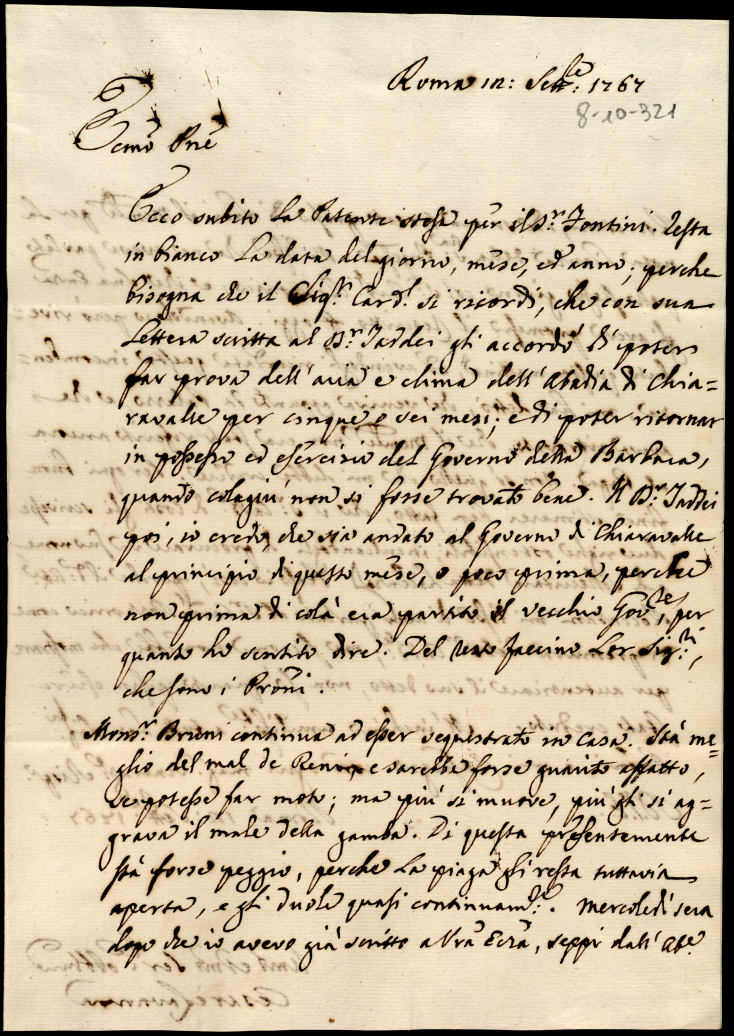 Roma 12: Sett.e: 1767
8-10-321
Ecmo Pne
Ecco subito la Patente stesa per il Sr. Fontini. Resta
in bianco la data del giorno, mese, ed anno; perche
bisogna che il Sigr. Card.l si ricordi, che con sua
Lettera scritta al Dr. Taddei gli accordò di poter
far prova dell'aria e clima dell'Abadia di Chia=
ravalle per cinque o sei mesi; e di poter ritornar
in possesso ed esercizio del Governo della Barbara,
quando colagiù non si fosse trovato bene. Il Dr. Taddei
poi, io credo, che sia andato al Governo di Chiaravalle
al principio di questo mese, o poco prima, perche
non prima di colà era partito il vecchio Gov.re, per
quanto ho sentito dire. Del resto faccino Lor Sig.ri,
che sono i Proni.
Monsr. Bruni continua ad esser sequestrato in casa. Stà me=
glio del mal de Reni, e sarebbe forse guarito affatto,
se potesse far moto; ma più si muove, più gli si ag=
grava il male della gamba. Di questa presentemente
stà forse peggio, perche la piaga gli resta tuttavia
aperta, e gli duole quasi continuam.e. Mercoledì sera
dopo che io avevo già scritto a Vra Ecza, seppi dall'Abe.